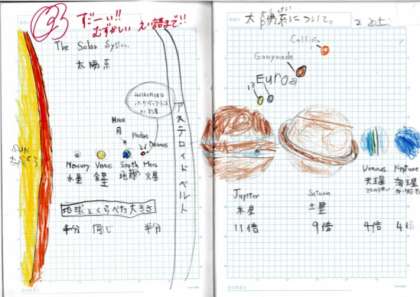 すげーい!!
むずかしい えい語まで!!
The Solar System
太陽系
Moon
月
Phobos
Deimos
アステロイドベルト
SUN
たいよう
Mercury Venus South Mars
水星 金星 地球 火星
地球とくらべた大きさ
半分 同じ 半分
太陽系について。
Callisto
Ganymede
Europa
Io
Jupiter
木星
11倍
Saturn
土星
9倍
Uranus
天王星
4倍
Neptune
海王星
4倍